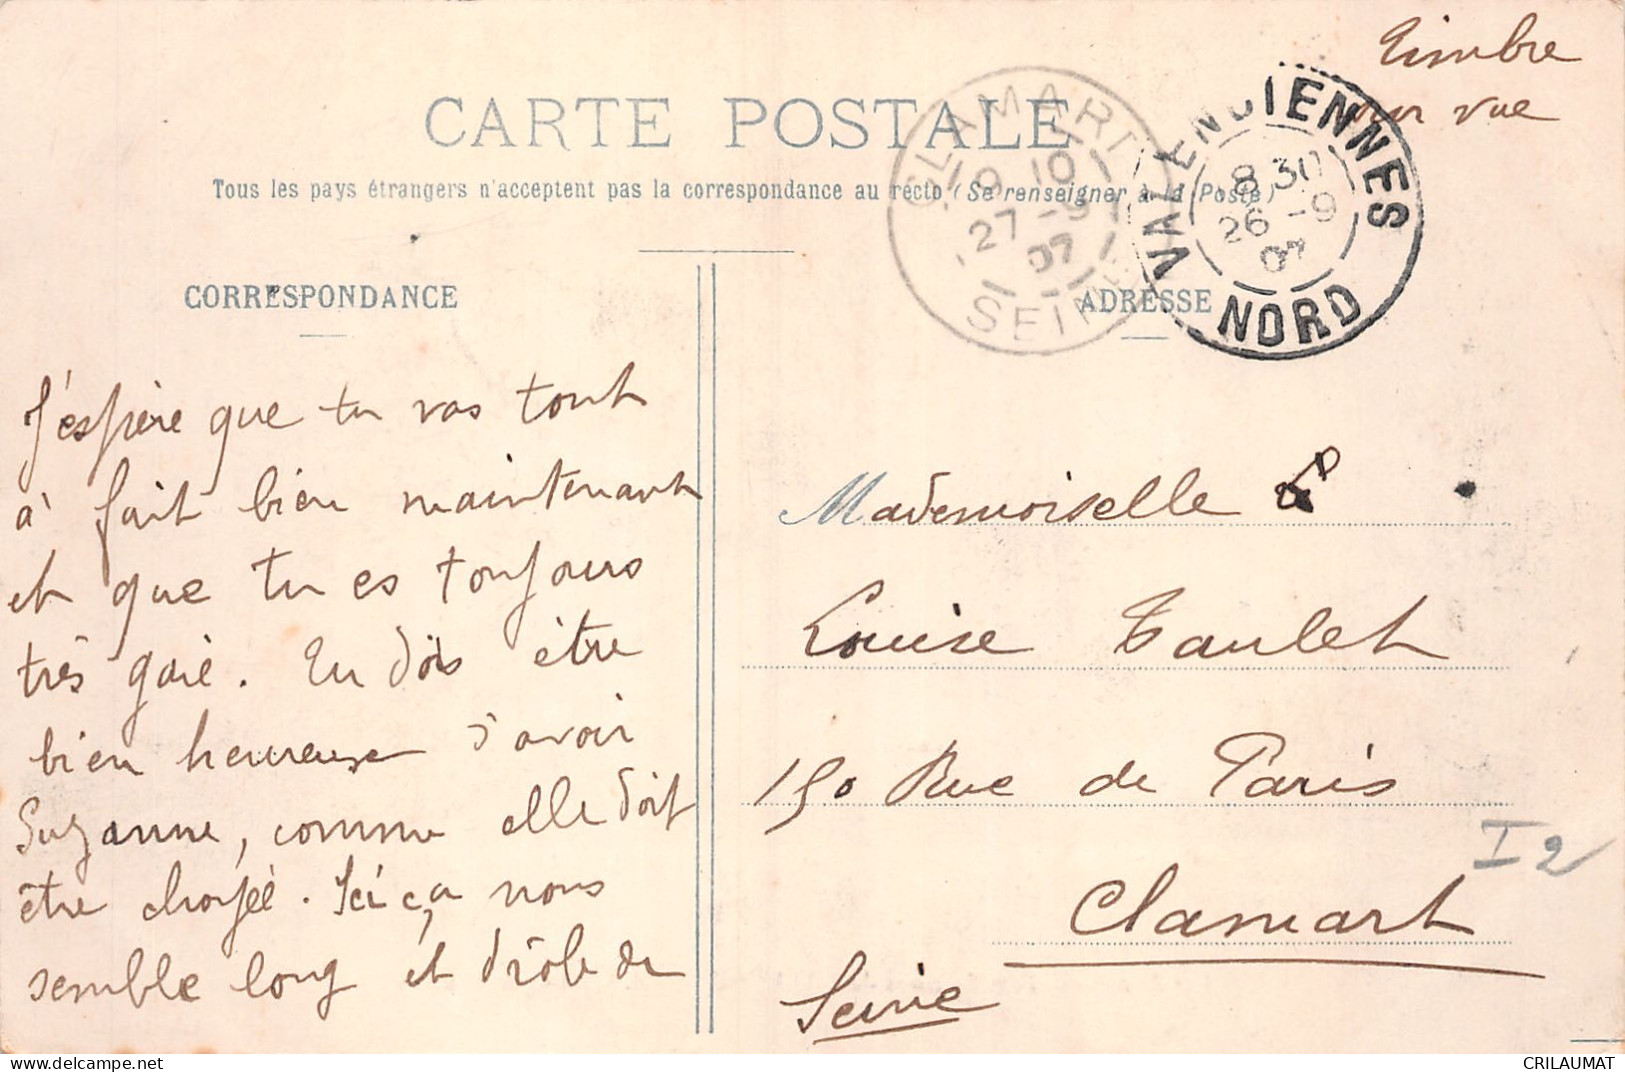 Timbre
sur vue
CARTE POSTALE
Tous les pays étrangers n'acceptent pas la correspondance au recto (Se renseigner à la Poste)
CLAMART
9 10
27 - 9
07
SEINE
VALENCIENNES
8 30
26 - 9
07
NORD
CORRESPONDANCE
J'espère que tu vas tout
à fait bien maintenant
et que tu es toujours
très gaie. Tu dois être
bien heureuse d'avoir
Suzanne, comme elle doit
être choyée. Ici ça nous
semble long et drôle de
ADRESSE
Mademoiselle
Louise Taulet
150 Rue de Paris
Clamart
Seine
I 2
CRILAUMAT